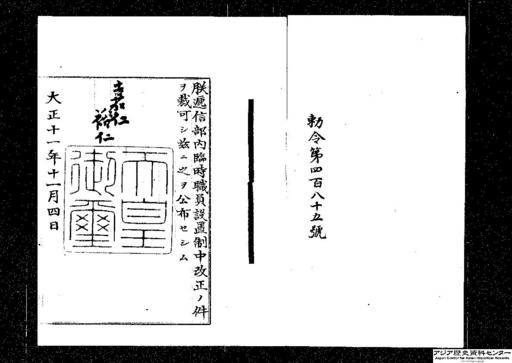 勅令第四百八十五號
朕遞信部内臨時職員設置制中改正ノ件
ヲ裁可シ玆ニ之ヲ公布セシム
嘉仁
裕仁
天皇
御璽
大正十一年十一月四日
アジア歴史資料センター
Japan Center for Asian Historical Records